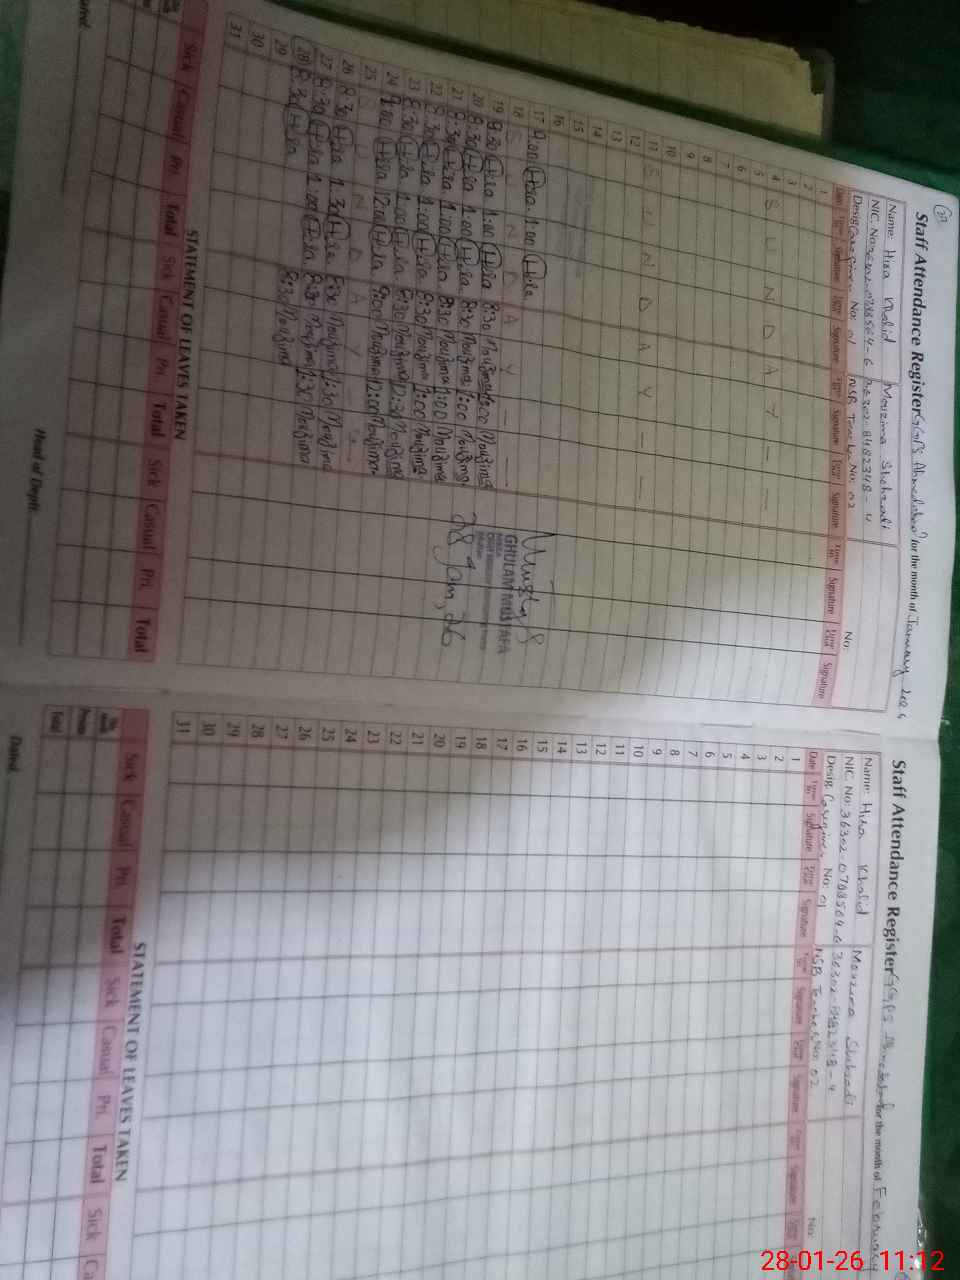 Staff Attendance Register GGPS Ahmedabad for the month of January 2026
Name: Hira Khalid Mouzima Shahzadi
NIC. No: 36302-0788564-6 36302-8482348-4
Desig: Care Giver No: 01 NSB Teacher No: 02 No:
Date Time In Signature Time Out Signature Time In Signature Time Out Signature Time In Signature Time Out Signature
1
2
3
4 S U N D A Y — —
5
6
7
8
9
10
11 S U N D A Y — —
12
13
14
15
16
17 9:00 Hira 1:00 Hira
18 S U N D A Y — —
19 8:30 Hira 1:00 Hira 8:30 Mouzima 1:00 Mouzima
20 8:30 Hira 1:00 Hira 8:30 Mouzima 1:00 Mouzima
21 8:30 Hira 1:00 Hira 8:30 Mouzima 1:00 Mouzima
22 8:30 Hira 1:00 Hira 8:30 Mouzima 1:00 Mouzima
23 8:30 Hira 1:00 Hira 8:30 Mouzima 12:30 Mouzima
24 9:00 Hira 12:00 Hira 9:00 Mouzima 12:00 Mouzima
25 S U N D A Y
26 8:30 Hira 1:30 Hira 8:30 Mouzima 1:30 Mouzima
27 8:30 Hira 1:00 Hira 8:30 Mouzima 1:30 Mouzima
28 8:30 Hira 8:30 Mouzima
29
30
31
GHULAM MUSTAFA
28 Jan, 26
STATEMENT OF LEAVES TAKEN
Sick Casual Pri. Total Sick Casual Pri. Total Sick Casual Pri. Total
Dated Head of Deptt.
Staff Attendance Register GGPS Ahmedabad for the month of February
Name: Hira Khalid Mouzima Shahzadi
NIC. No: 36302-0788564-6 36302-8482348-4
Desig: Caregiver No: 01 NSB Teacher No: 02 No:
Date Time In Signature Time Out Signature Time In Signature Time Out Signature Time In Signature Time Out
1
2
3
4
5
6
7
8
9
10
11
12
13
14
15
16
17
18
19
20
21
22
23
24
25
26
27
28
29
30
31
STATEMENT OF LEAVES TAKEN
Sick Casual Pri. Total Sick Casual Pri. Total Sick
Total
Dated
28-01-26 11:12